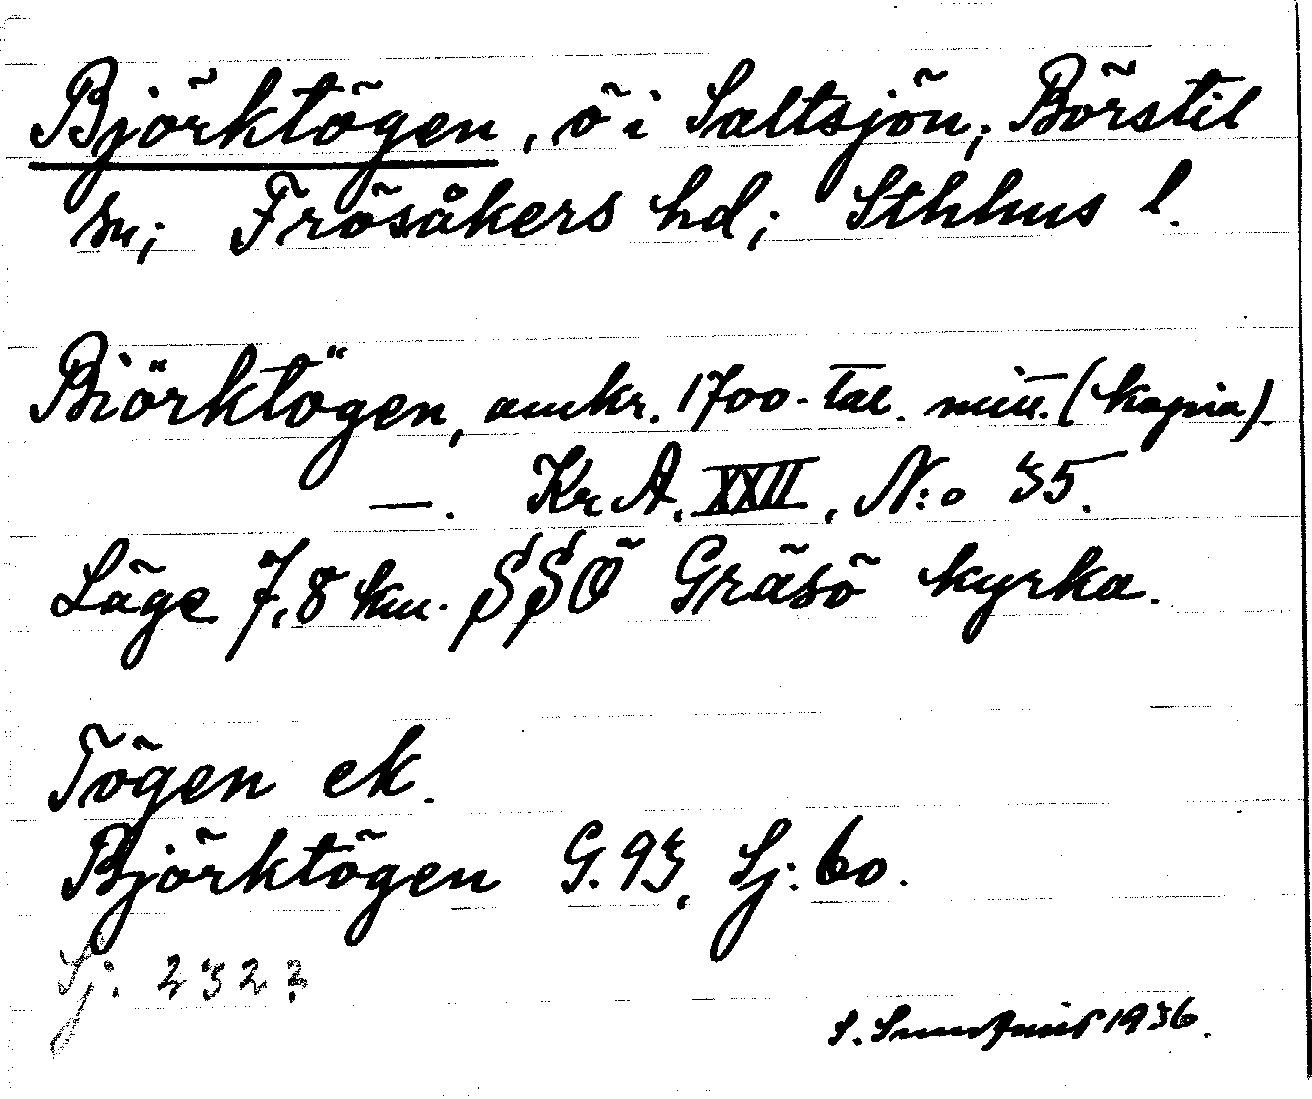 Björktögen, ö i Saltsjön; Börstil
sn; Frösåkers hd; Sthhus l.
Biörktögen, omkr. 1700-tal. mitt. (kopia)
—. Kr A. XXII, N:o 35.
Läge 7,8 km. SSÖ Gräsö kyrka.
Tögen ek.
Björktögen G. 93, Sj: 60.
Sj: 232?
S. 1936.